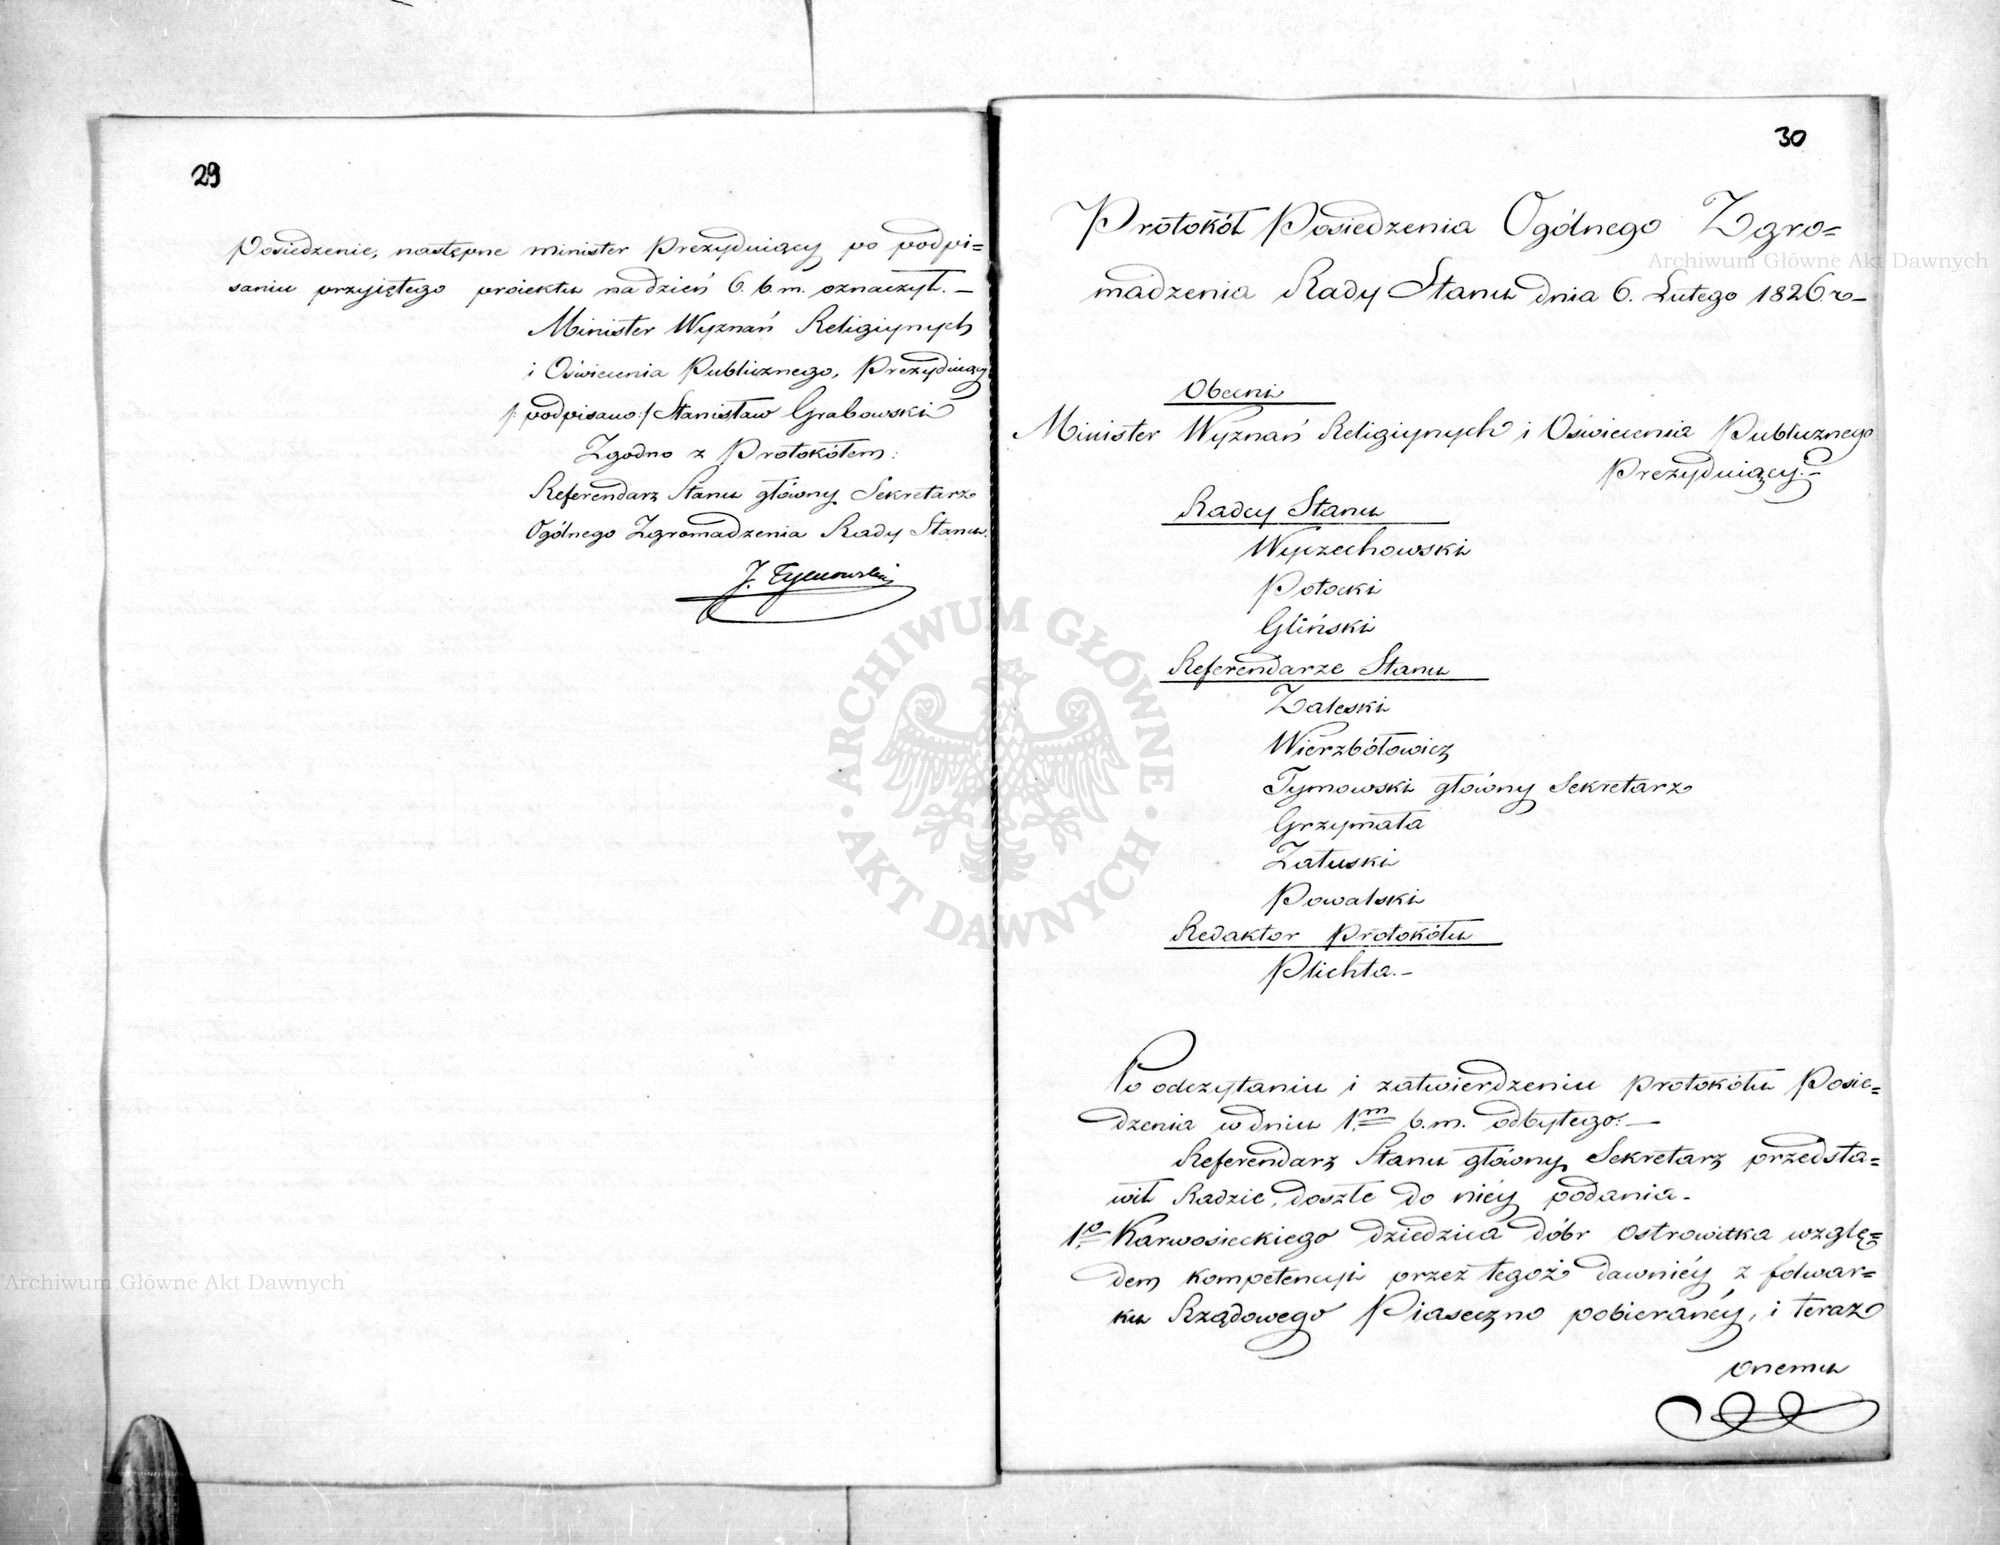 29
Posiedzenie, następne minister Prezyduiący po podpi=
saniu przyiętego proiektu na dzień 6. b. m. oznaczył. —
Minister Wyznań Religiynych
i Oświecenia Publicznego, Prezyduiący
/: podpisano :/ Stanisław Grabowski
Zgodno z Protokółem:
Referendarz Stanu główny Sekretarz
Ogólnego Zgromadzenia Rady Stanu.
J. Tymowski
30
Protokół Posiedzenia Ogólnego Zgro=
madzenia Rady Stanu dnia 6. Lutego 1826. r —
Obecni
Minister Wyznań Religiynych i Oświecenia Publicznego
Prezyduiący. —
Radcy Stanu
Wyczechowski
Potocki
Gliński
Referendarze Stanu
Zaleski
Wierzbołowicz
Tymowski główny Sekretarz
Grzymała
Załuski
Powalski
Redaktor Protokółu
Plichta. —
Po odczytaniu i zatwierdzeniu protokółu Posie=
dzenia w dniu 1.m b. m. odbytego: —
Referendarz Stanu główny Sekretarz przedsta=
wił Radzie, doszłe do niéy podania.
1.o Karwosieckiego dziedzica dóbr Ostrowitka wzglę=
dem kompetencyi przez tegoż dawniéy z folwar=
ku Rządowego Piaseczno pobieranéy, i teraz
onemu
Archiwum Główne Akt Dawnych
Archiwum Główne Akt Dawnych
ARCHIWUM GŁÓWNE · AKT DAWNYCH ·